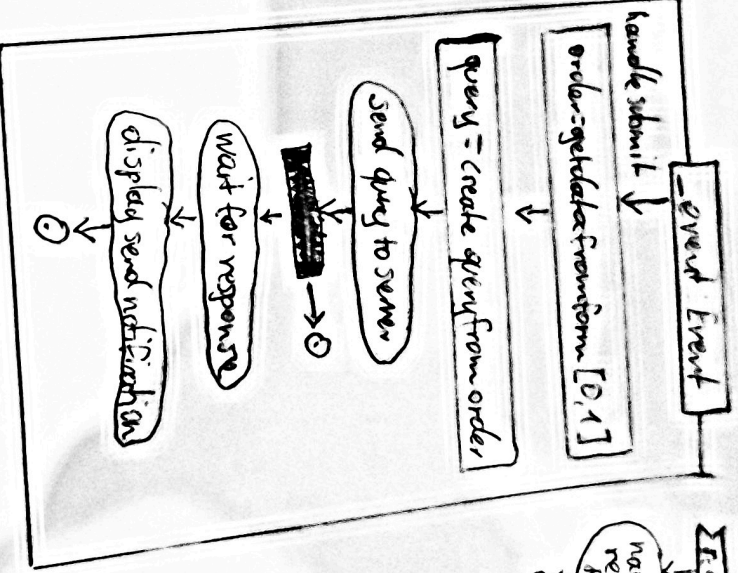 _event: Event
handle submit
order=getdatafromform [0,1]
query = create query from order
send query to server
wait for response
display send notification
na
re